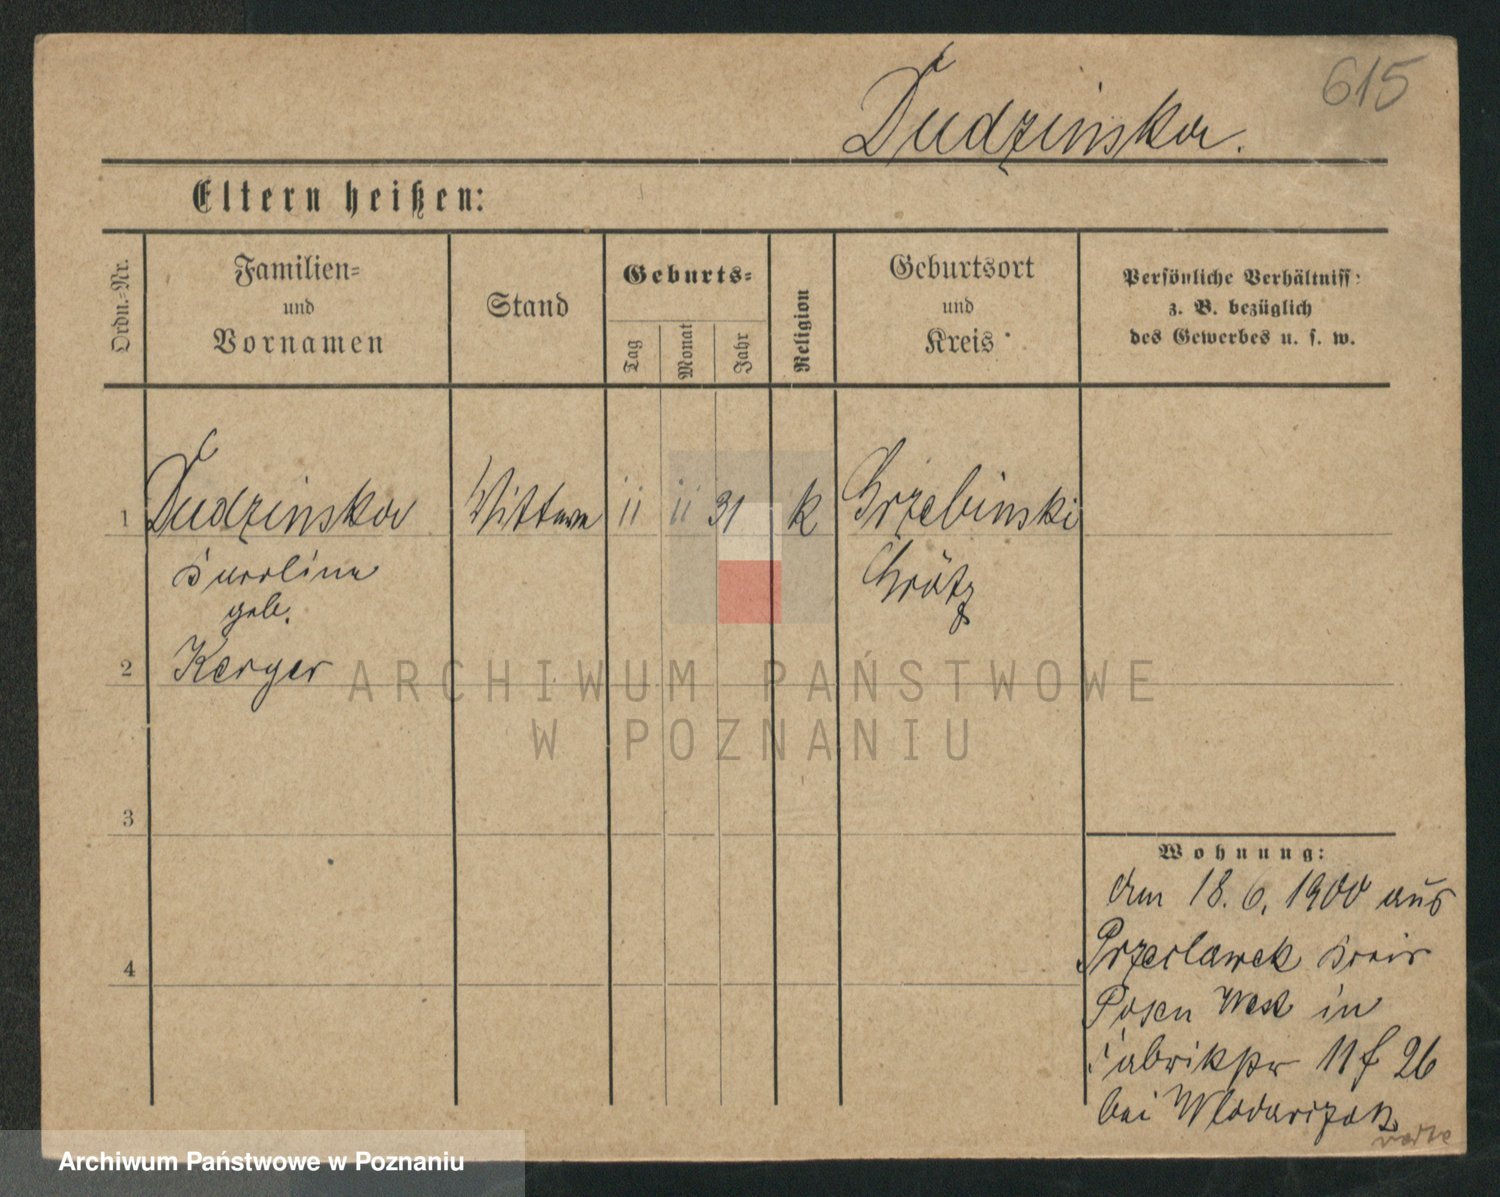 615
Dudzinska.
Eltern heißen:
Ordn.-Nr.
Familien-
und
Vornamen
Stand
Geburts-
Tag
Monat
Jahr
Religion
Geburtsort
und
Kreis
Persönliche Verhältniss
z. B. bezüglich
des Gewerbes u. s. w.
1 Dudzinska Wittwe 11 11 31 k Grzebinski
Karoline Grätz
geb.
2 Kerger
ARCHIWUM PAŃSTWOWE
W POZNANIU
3
Wohnung:
Am 18. 6. 1900 aus
Przeclawek Kreis
4
Posen West in
Fabrikstr 11 f 26
bei Wlodarczak
Archiwum Państwowe w Poznaniu